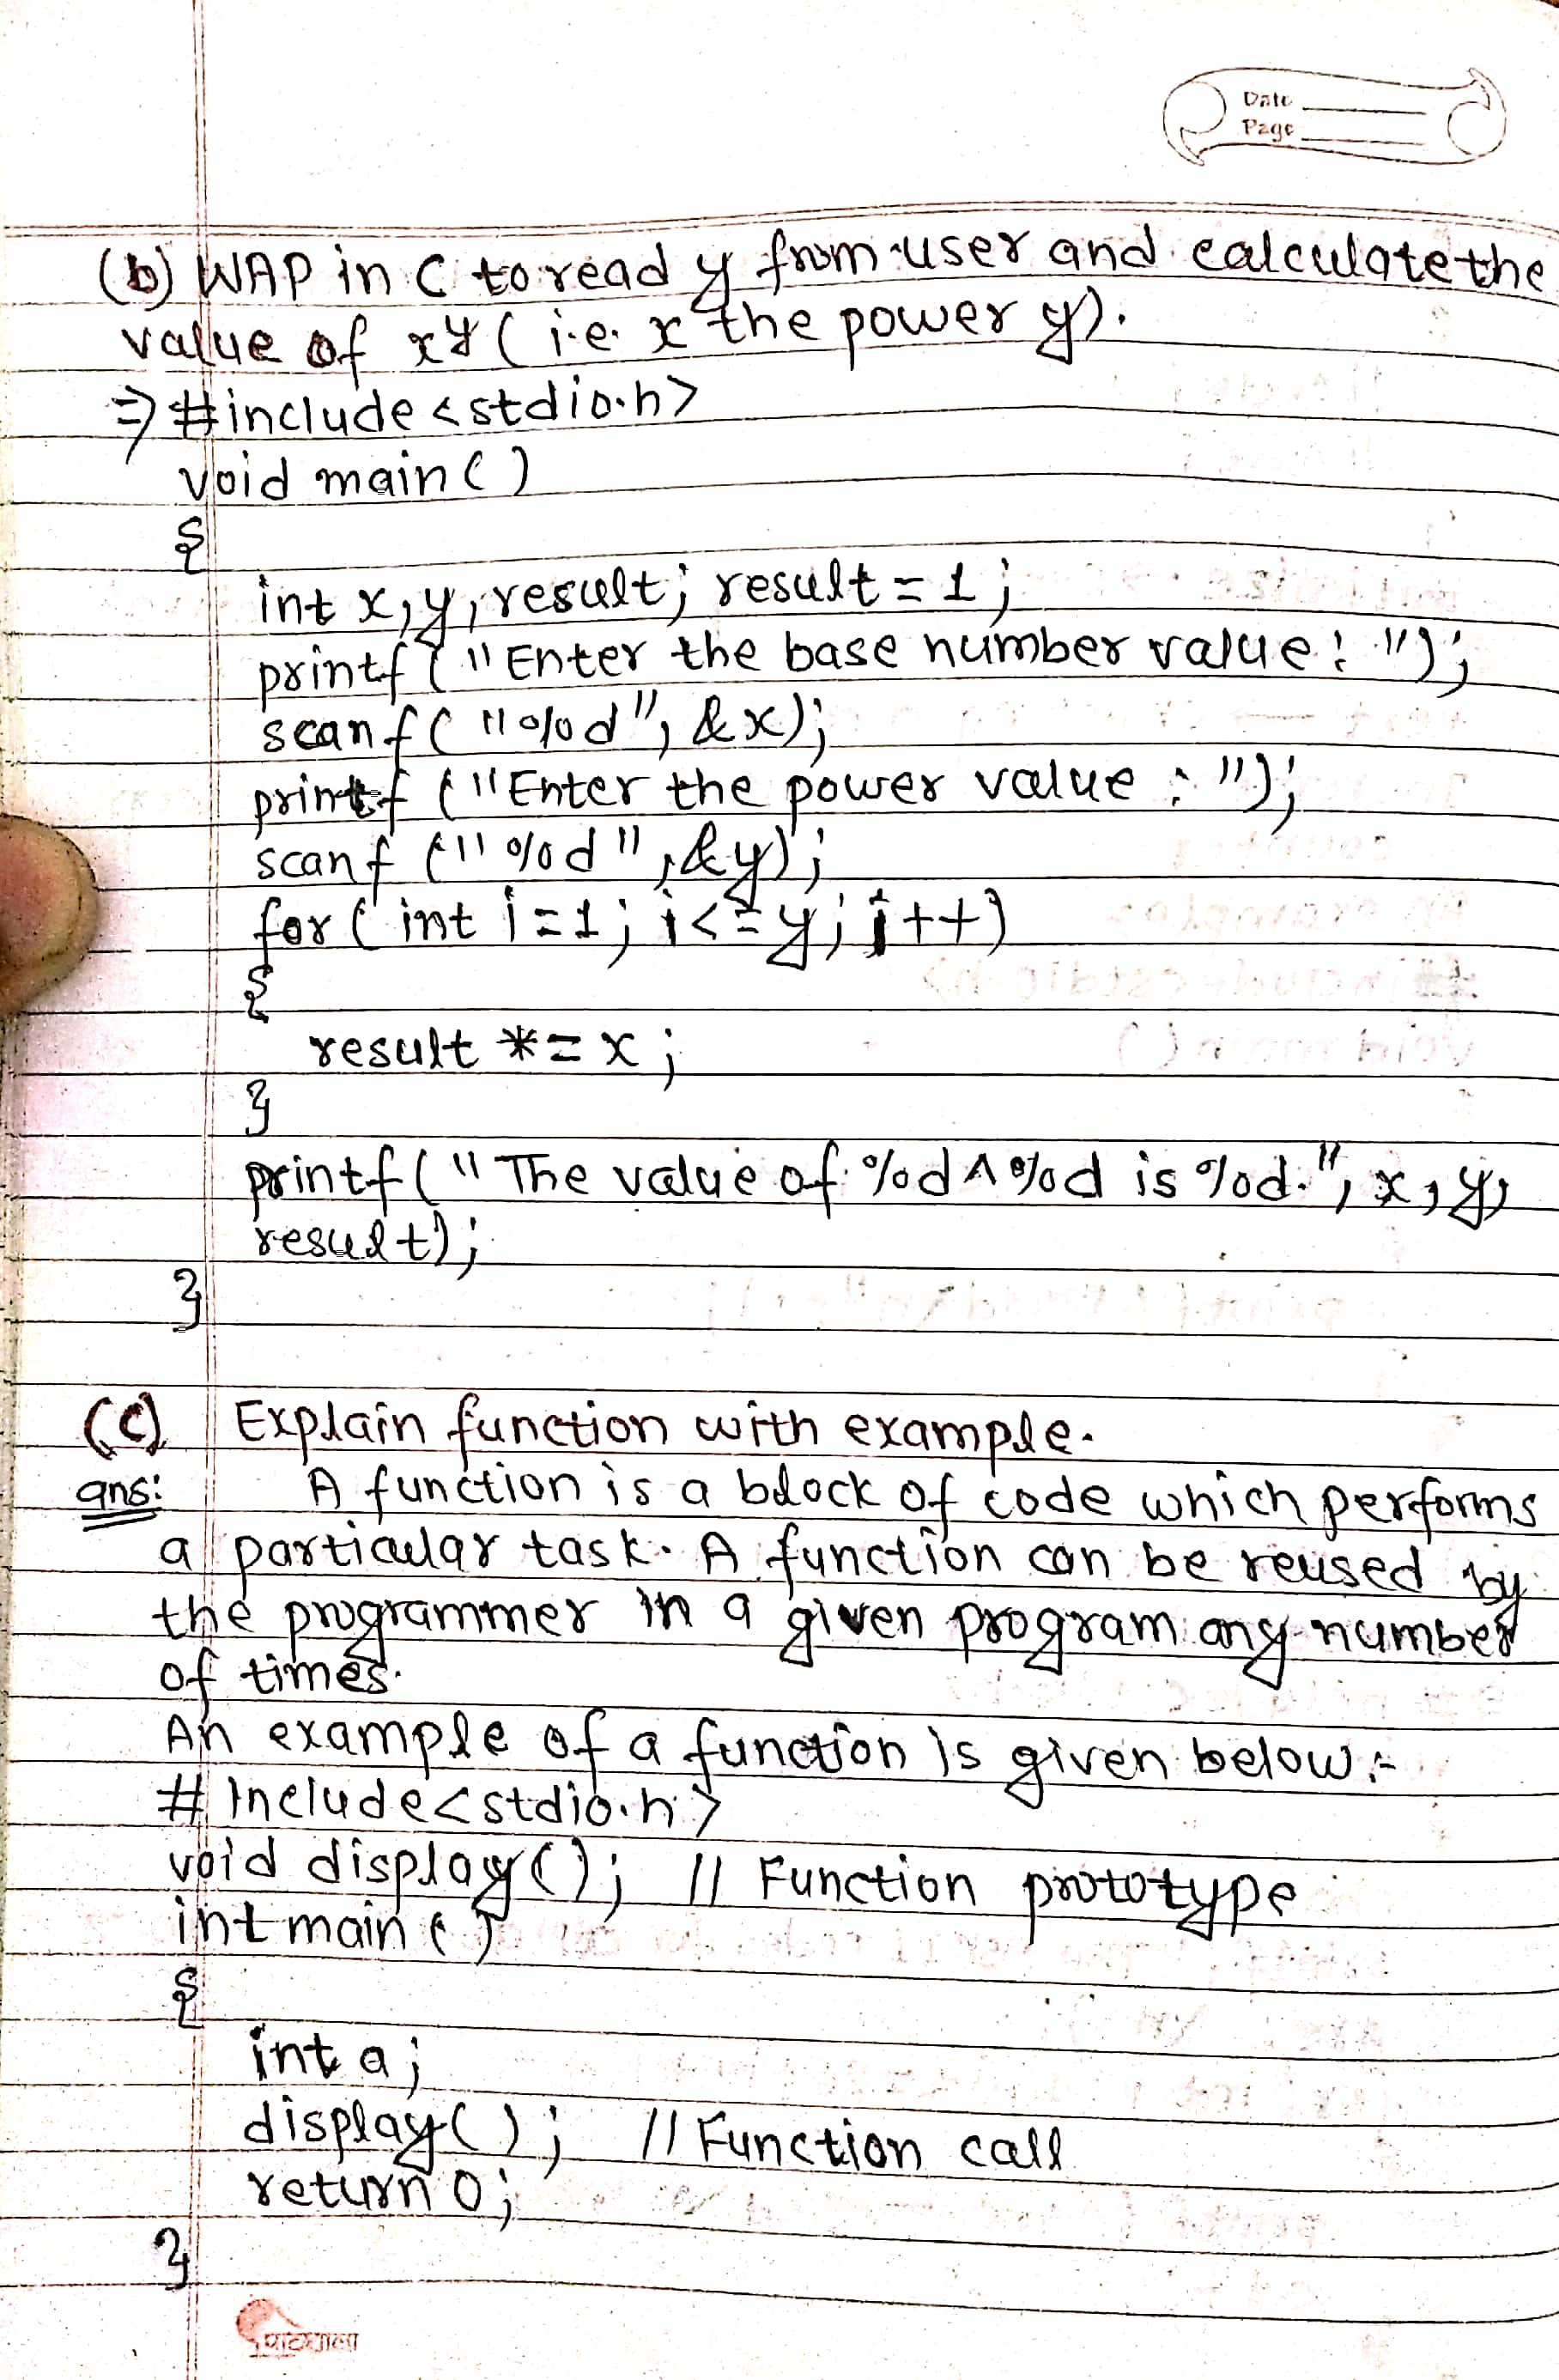 Date
Page
(b) WAP in C to read y from user and calculate the
value of xʸ ( i.e. x the power y).
⇒ #include <stdio.h>
void main()
{
int x, y, result; result = 1;
printf ("Enter the base number value: ");
scanf( "%d", &x);
printf ("Enter the power value : ");
scanf ("%d", &y);
for ( int i=1; i<=y; i++)
{
result *= x;
}
printf(" The value of %d^%d is %d.", x, y,
result);
}
(c) Explain function with example.
ans: A function is a block of code which performs
a particular task. A function can be reused by
the programmer in a given program any number
of times.
An example of a function is given below:-
# Include<stdio.h>
void display(); // Function prototype
int main()
{
int a;
display(); // Function call
return 0;
}
पाठशाला